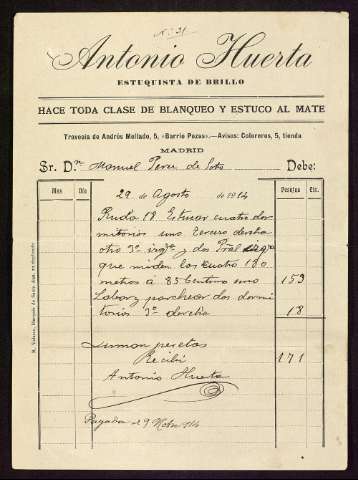 Nº 31
Antonio Huerta
ESTUQUISTA DE BRILLO
HACE TODA CLASE DE BLANQUEO Y ESTUCO AL MATE
Travesía de Andrés Mellado, 5, «Barrio Pozas».—Avisos: Coloreros, 5, tienda
MADRID
Sr. D. Manuel Perez de Soto Debe:
Mes Día Pesetas Cts.
29 de Agosto de 1914
18 Estucar cuatro dor
mitorios uno tercero derecha
otro 3º izqª y dos Pral
que miden los cuatro 180
metros a 85 Centimo uno 153
Labar y parchear dos dormi
torios 3º derecha 18
Suman pesetas 171
Recibí
Antonio Huerta
Pagada 29